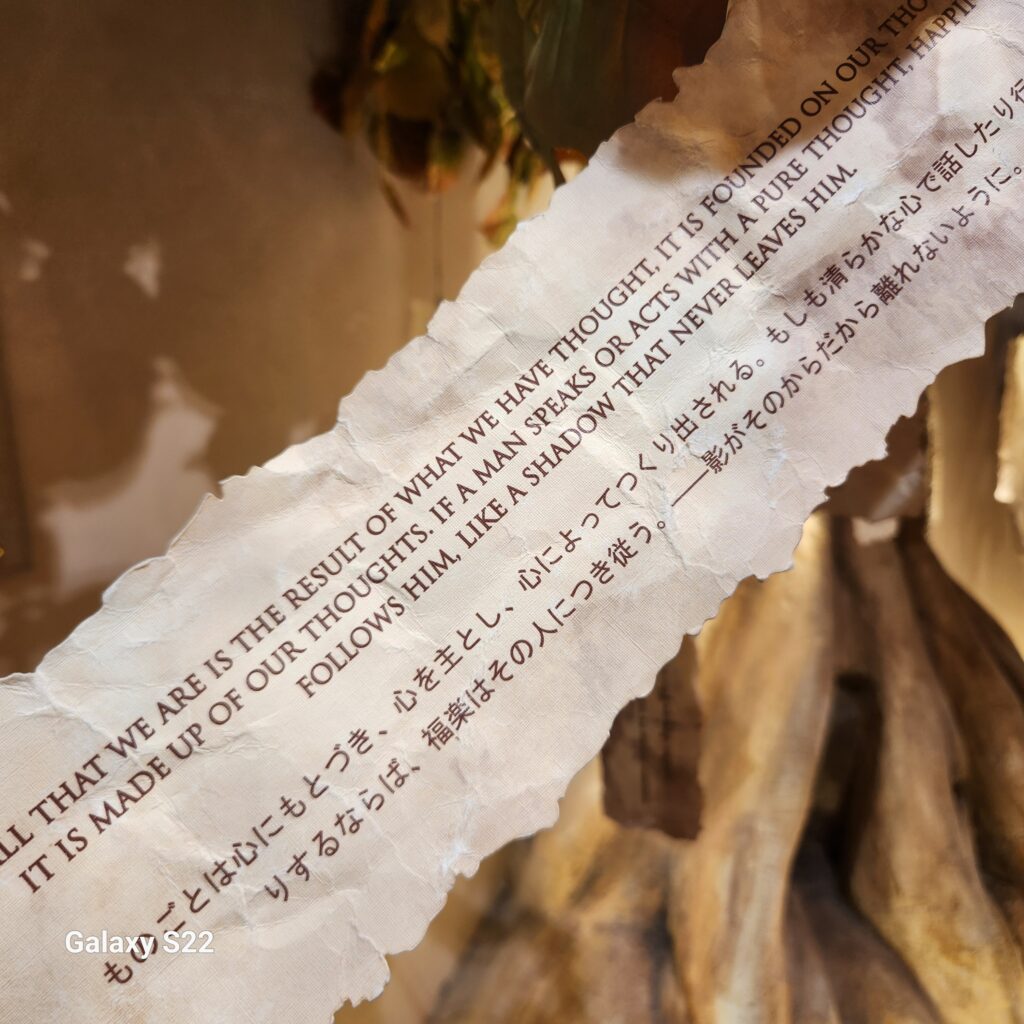 ALL THAT WE ARE IS THE RESULT OF WHAT WE HAVE THOUGHT, IT IS FOUNDED ON OUR
IT IS MADE UP OF OUR THOUGHTS. IF A MAN SPEAKS OR ACTS WITH A PURE THOUGHT,
FOLLOWS HIM, LIKE A SHADOW THAT NEVER LEAVES HIM.
ものごとは心にもとづき、心を主とし、心によってつくり出される。もしも清らかな心で話したり行
りするならば、福楽はその人につき従う。——影がそのからだから離れないように。
Galaxy S22